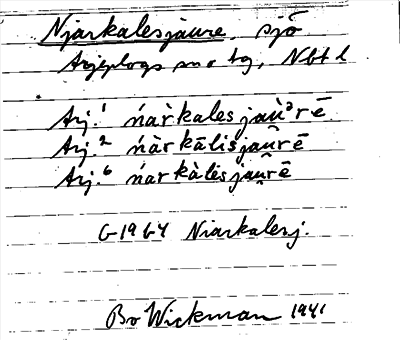 Njarkalesjaure, sjö
Arjeplogs sn o tg, Nbt l
Arj.¹ ńàrkales jaùᵊrē
Arj.² ńàrkālisjau̯rē
Arj.⁶ ńarkàlèsjau̯rē
G 1964 Niarkalesj.
Bo Wickman 1941